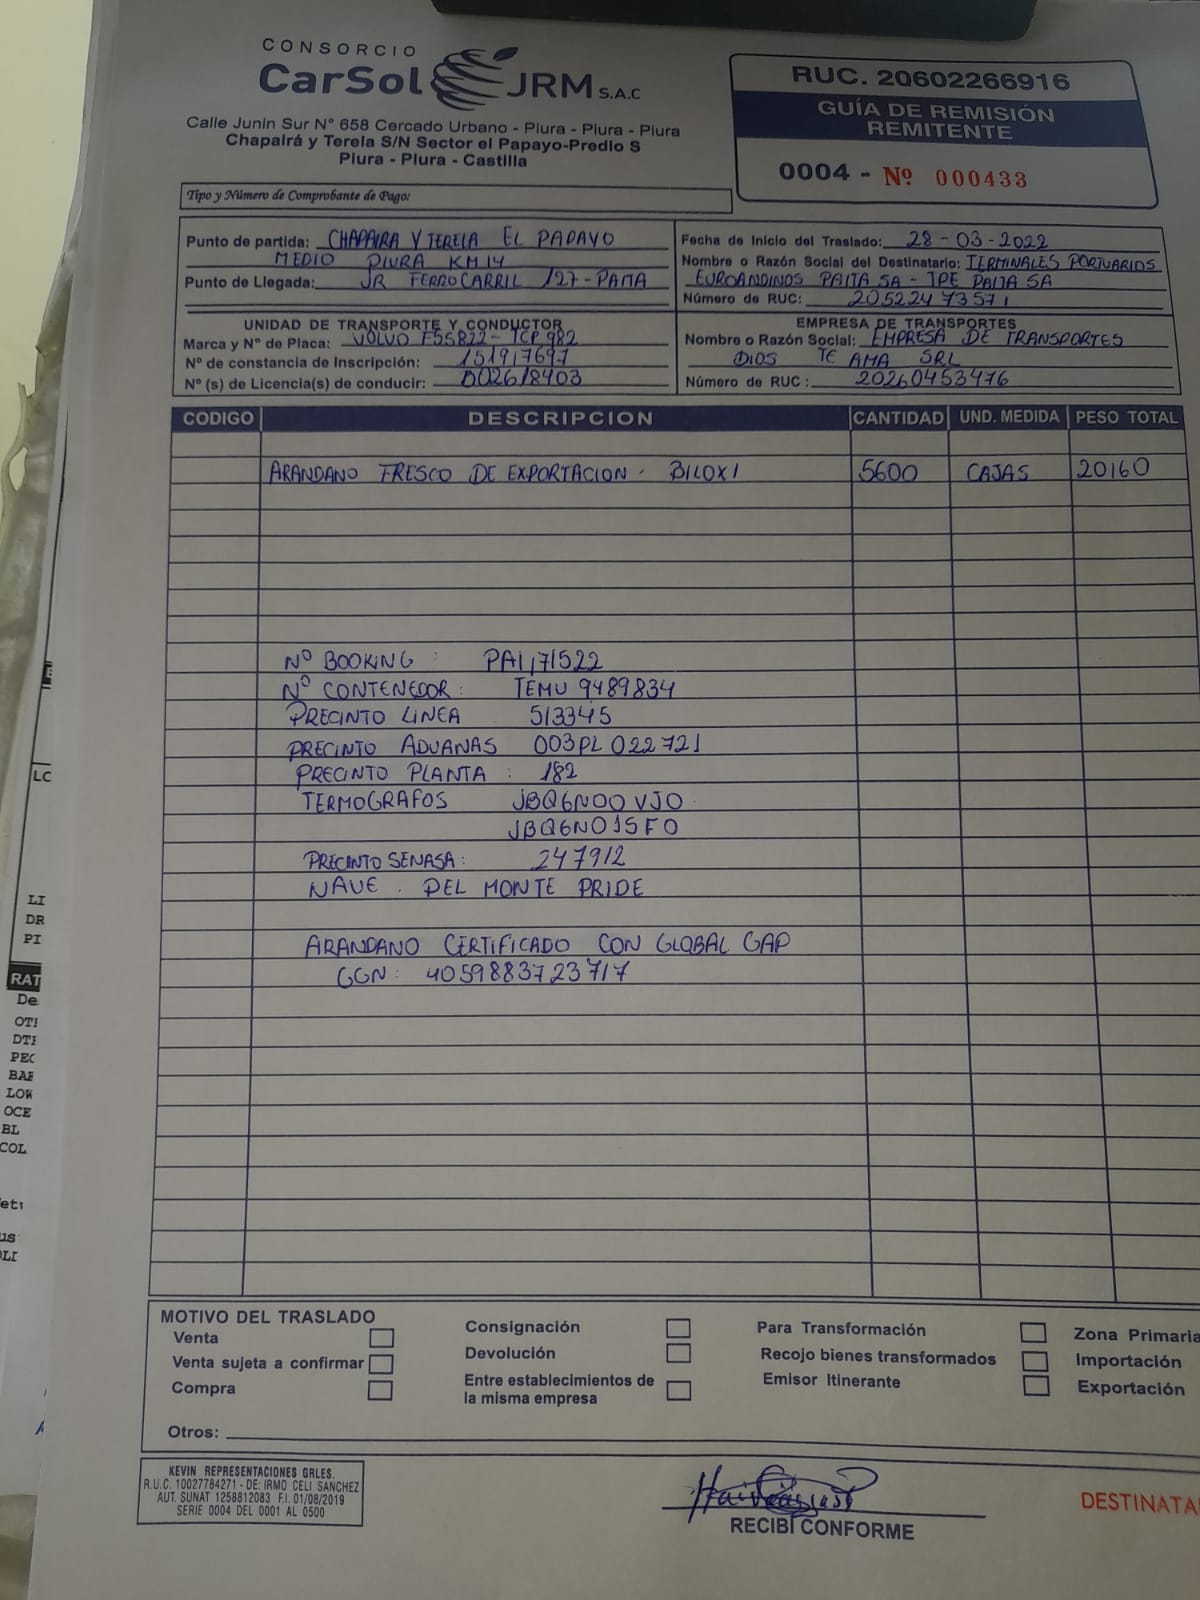 CONSORCIO
CarSol JRM S.A.C
Calle Junin Sur N° 658 Cercado Urbano - Piura - Piura - Piura
Chapairá y Terela S/N Sector el Papayo-Predio S
Piura - Piura - Castilla
RUC. 20602266916
GUÍA DE REMISIÓN
REMITENTE
0004 - Nº 000433
Tipo y Número de Comprobante de Pago:
Punto de partida: CHAPAIRA Y TERELA EL PAPAYO
MEDIO PIURA KM14
Punto de Llegada: JR FERROCARRIL 127 - PAITA
Fecha de Inicio del Traslado: 28 - 03 - 2022
Nombre o Razón Social del Destinatario: TERMINALES PORTUARIOS
EUROANDINOS PAITA SA - TPE PAITA SA
Número de RUC: 20522473571
UNIDAD DE TRANSPORTE Y CONDUCTOR
Marca y N° de Placa: VOLVO F5S822 - TCP 982
N° de constancia de Inscripción: 151917697
N° (s) de Licencia(s) de conducir: B02618403
EMPRESA DE TRANSPORTES
Nombre o Razón Social: EMPRESA DE TRANSPORTES
DIOS TE AMA SRL
Número de RUC : 20260453476
CODIGO DESCRIPCION CANTIDAD UND. MEDIDA PESO TOTAL
ARANDANO FRESCO DE EXPORTACION - BILOXI 5600 CAJAS 20160
Nº BOOKING : PAI171522
Nº CONTENEDOR : TEMU 9489834
PRECINTO LINEA 513345
PRECINTO ADUANAS 003PL 022721
PRECINTO PLANTA : 182
TERMOGRAFOS JBQ6N00VJ0
JBQ6N015F0
PRECINTO SENASA : 247912
NAVE . DEL MONTE PRIDE
ARANDANO CERTIFICADO CON GLOBAL GAP
GGN : 4059883723717
MOTIVO DEL TRASLADO
Venta
Venta sujeta a confirmar
Compra
Consignación
Devolución
Entre establecimientos de
la misma empresa
Para Transformación
Recojo bienes transformados
Emisor Itinerante
Zona Primaria
Importación
Exportación
Otros:
KEVIN REPRESENTACIONES GRLES.
R.U.C. 10027784271 - DE: IRMO CELI SANCHEZ
AUT. SUNAT 1258812083 F.I. 01/08/2019
SERIE 0004 DEL 0001 AL 0500
RECIBÍ CONFORME
DESTINATA
LC
LI
DR
PI
RAT
De
OTI
PEC
LOW
OCE
BL
COL